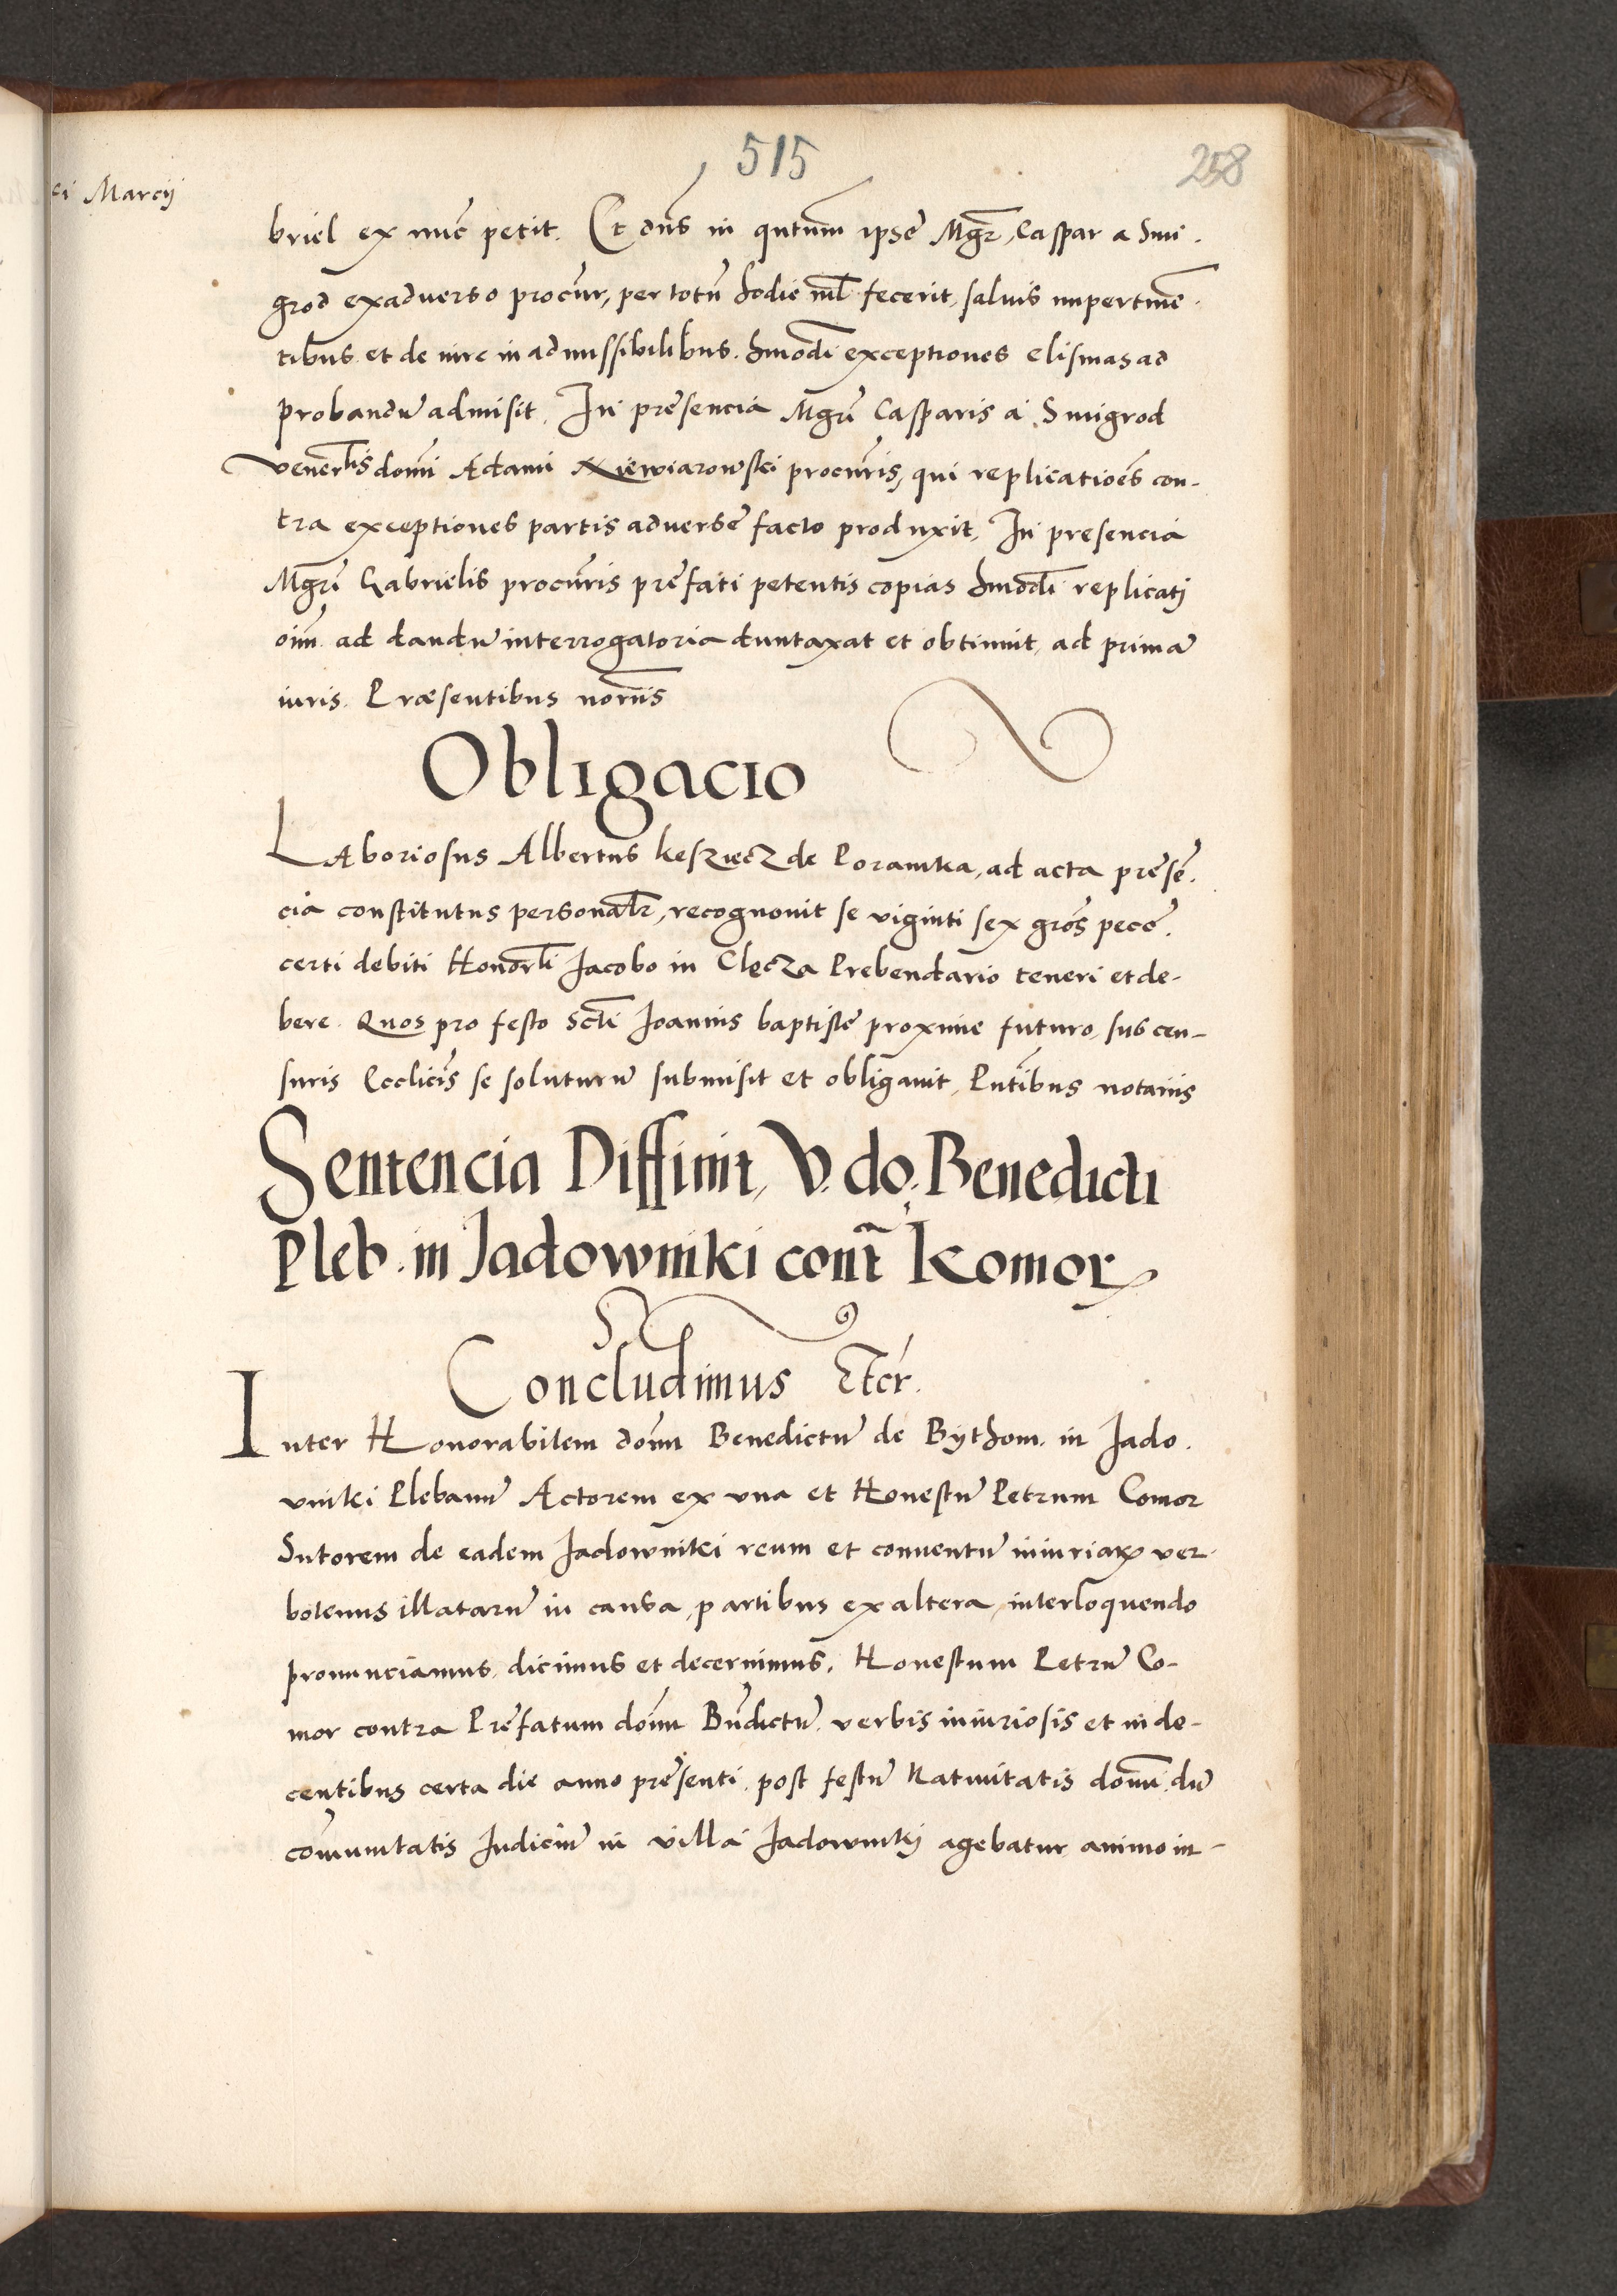 515
258
ci Marcij
briel ex nūc petit. Et dn̄s in qn̄tum̄ ipse Mgr̄, Caspar a Smi.
grod exaduerso procūr, per totū hodie nīl fecerit, saluis impertinē.
tibus et de iure in admissibilibus. hm̄odi exceptiones elismas ad
probandū admisit. In presencia Mgr̄i Casparis a Smigrod
venerl̄is domī Adami Niewiarowski procūris, qui replicatioēs con-
tra exceptiones partis aduersę facto produxit, In presencia
Mgr̄i Gabrielis procūris prefati petentis copias hm̄odi replicatj
oīm ad dandū interrogatoria duntaxat et obtinuit, ad primā
iuris. Præsentibus nor̄iis
Obligacio
LAboriosus Albertus keszkecz de Porambka, ad acta presē.
cia constitutus personal̄r, recognouit se viginti sex gros̄ pecē.
certi debiti Honorl̄i Jacobo in Clęcza Prebendario teneri et de-
bere. Quos pro festo Sct̄i Joannis baptistę proxime futuro, sub cen-
suris Eccl̄icis se soluturū submisit et obligauit, Pn̄tibus notariis
Sentencia Diffinit, V. do. Benedicti
Pleb. in Jadowniki cont̄ Komor
Concludimus Etcr.
Inter Honorabilem dom̄ Benedictū de Bythom. in Jado.
vniki Plebanū Actorem ex vna et Honestū Petrum Comor
Sutorem de eadem Jadowniki reum et conuentū iniuriarꝝ ver-
botenus illatarū in causa, partibus ex altera, interloquendo
pronunciamus, dicimus et decernimus, Honestum Petrū Co-
mor contra Prefatum dom̄ Bn̄dictū. verbis iniuriosis et inde-
centibus certa die anno presenti. post festū Natiuitatis domī. dū
com̄unitatis Judiciū in villa Jadownikj agebatur animo in-